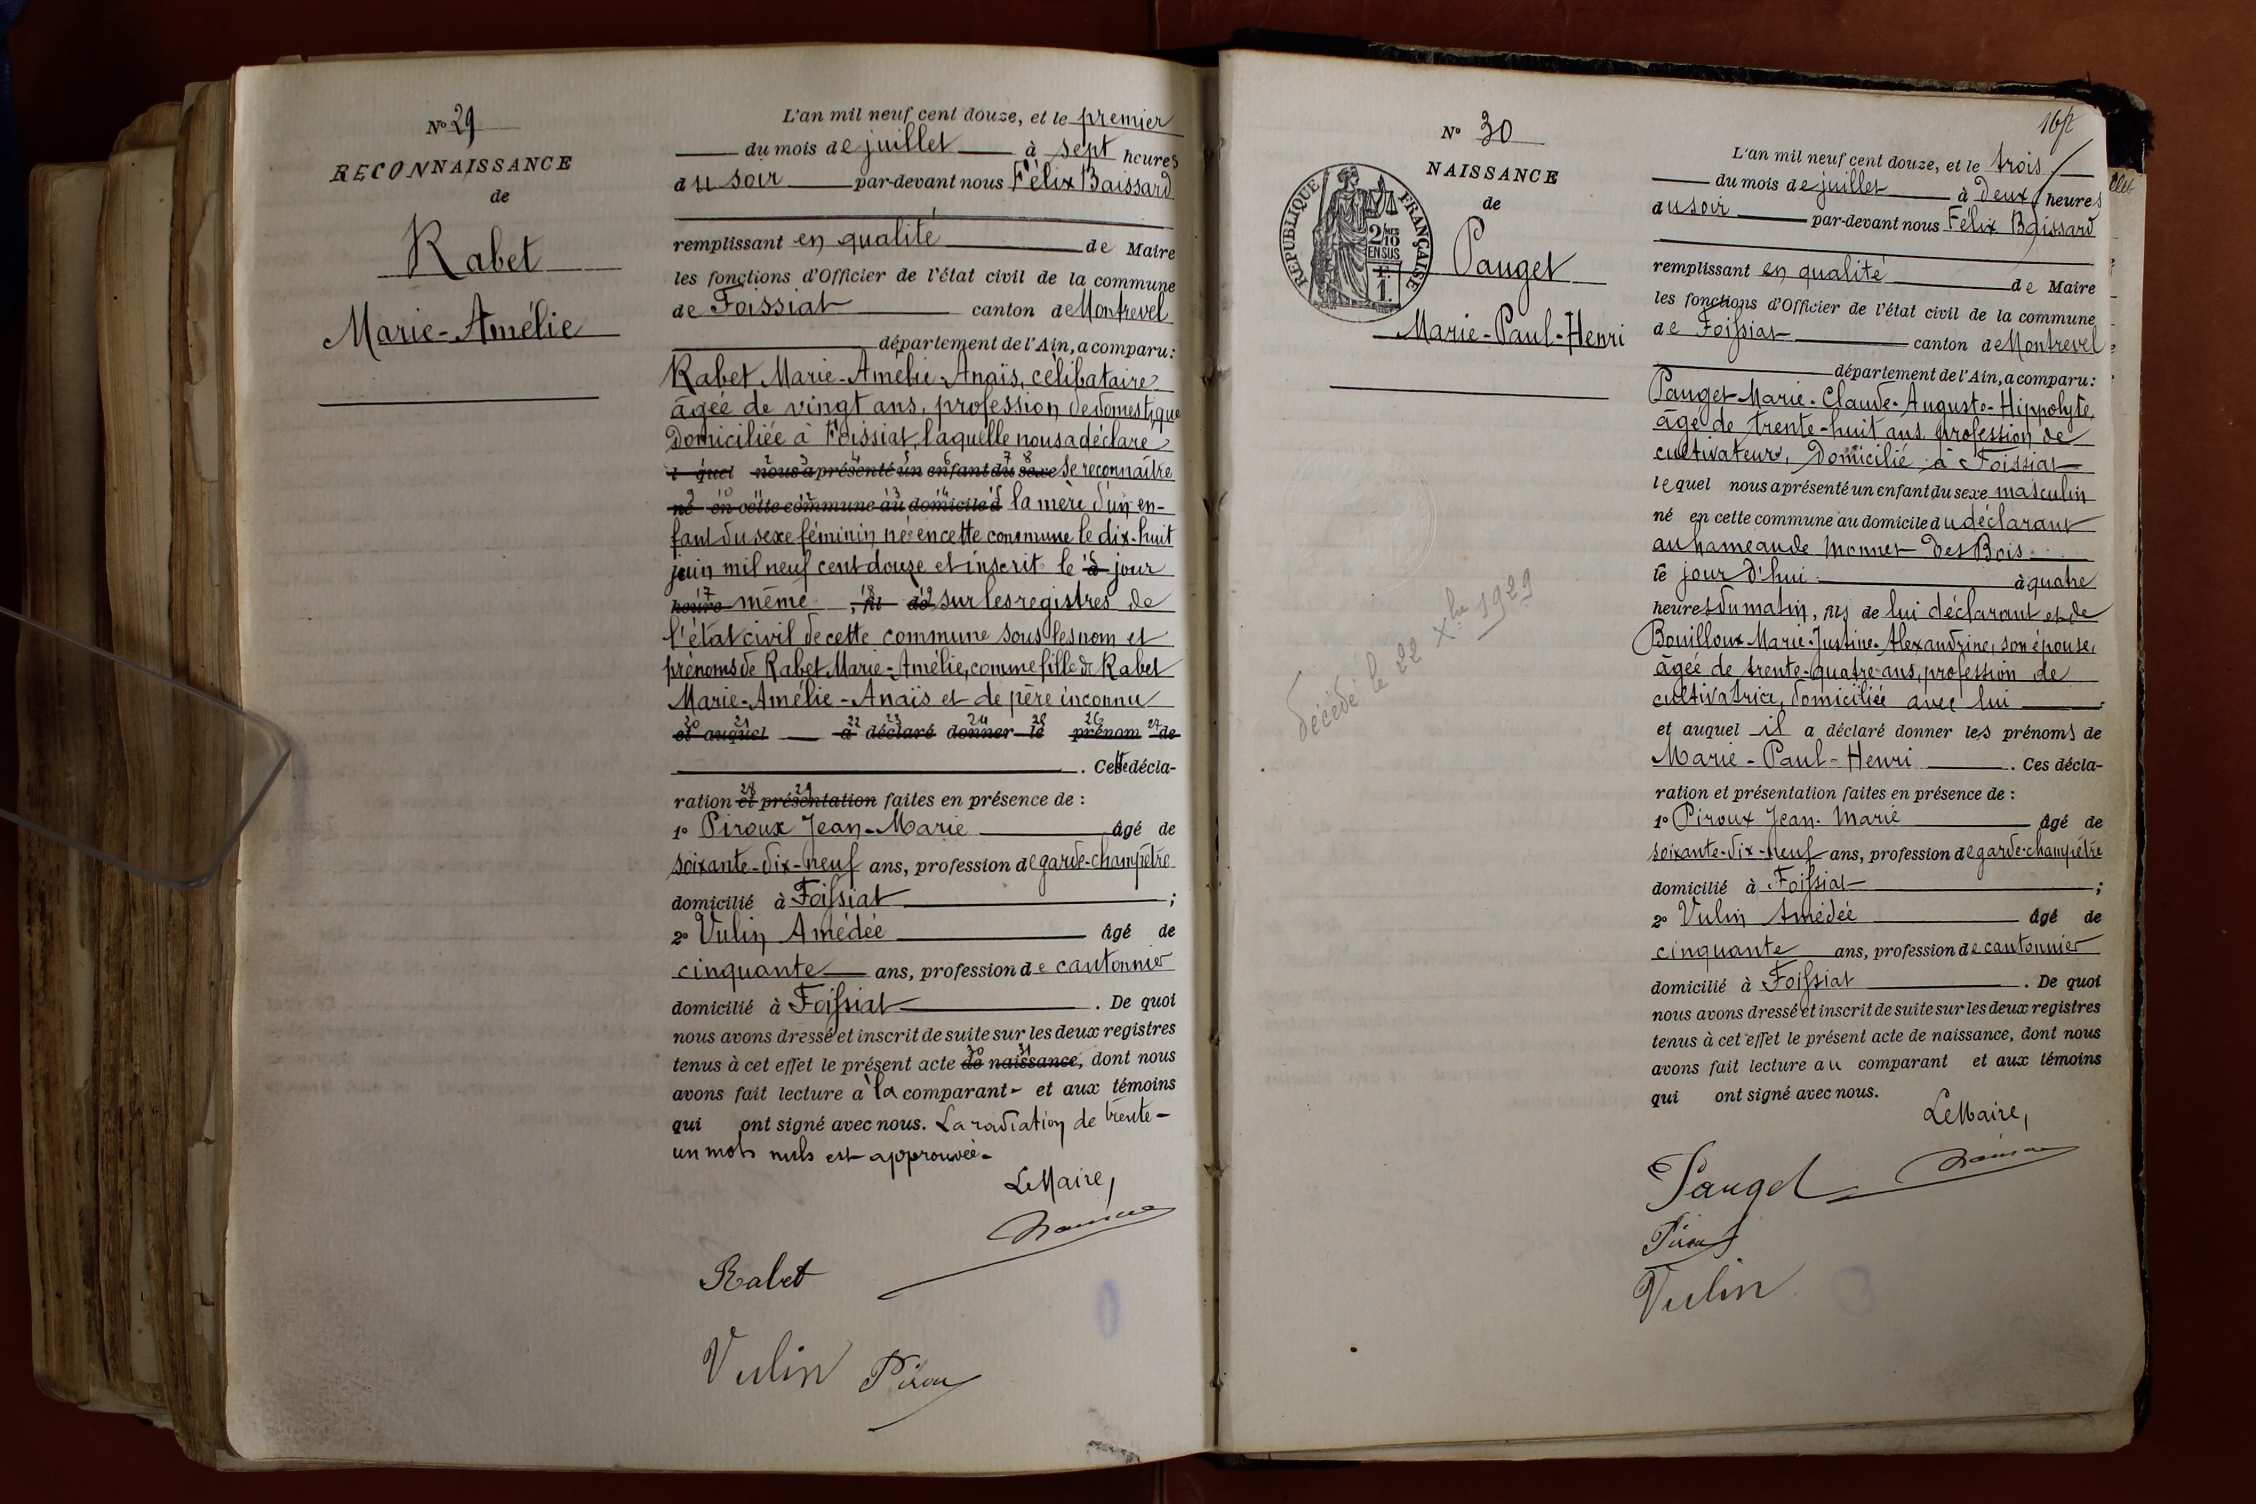 N° 29
RECONNAISSANCE
de
Rabet
Marie-Amélie
L'an mil neuf cent douze, et le premier
du mois de juillet à sept heures
du soir par-devant nous Félix Baissard
remplissant en qualité de Maire
les fonctions d'Officier de l'état civil de la commune
de Foissiat canton de Montrevel
département de l'Ain, a comparu:
Rabet Marie-Amélie-Anaïs, célibataire
âgée de vingt ans, profession de domestique
domiciliée à Foissiat, laquelle nous a déclaré
l quel nous a présenté un enfant du sexe se reconnaître
né en cette commune au domicile d la mère d'un en-
fant du sexe féminin né en cette commune le dix-huit
juin mil neuf cent douze et inscrit le à jour
heure même , fil de sur les registres de
l'état civil de cette commune sous les nom et
prénoms de Rabet Marie-Amélie, comme fille de Rabet
Marie-Amélie-Anaïs et de père inconnu
et auquel a déclaré donner le prénom de
. Cette décla-
ration et présentation faites en présence de :
1° Piroux Jean-Marie âgé de
soixante-dix-neuf ans, profession de garde-champêtre
domicilié à Foissiat ;
2° Vulin Amédée âgé de
cinquante ans, profession de cantonnier
domicilié à Foissiat . De quoi
nous avons dressé et inscrit de suite sur les deux registres
tenus à cet effet le présent acte de naissance, dont nous
avons fait lecture à la comparant et aux témoins
qui ont signé avec nous. La radiation de trente-
un mots nuls est approuvée.
Le Maire,
Rabet
Vulin Pirou
N° 30
NAISSANCE
de
RÉPUBLIQUE FRANÇAISE
2/10
EN SUS
Pauget
Marie-Paul-Henri
Décédé le 22 Xbre 1929
L'an mil neuf cent douze, et le trois
du mois de juillet à deux heures
du soir par-devant nous Félix Baissard
remplissant en qualité de Maire
les fonctions d'Officier de l'état civil de la commune
de Foissiat canton de Montrevel
département de l'Ain, a comparu:
Pauget Marie-Claude-Auguste-Hippolyte
âgé de trente-huit ans profession de
cultivateur, domicilié à Foissiat
lequel nous a présenté un enfant du sexe masculin
né en cette commune au domicile du déclarant
au hameau de Monnet des Bois
le jour d'hui à quatre
heures du matin, fils de lui déclarant et de
Bouilloux Marie-Justine-Alexandrine, son épouse,
âgée de trente-quatre ans, profession de
cultivatrice, domiciliée avec lui
et auquel il a déclaré donner les prénoms de
Marie-Paul-Henri . Ces décla-
ration et présentation faites en présence de :
1° Piroux Jean-Marie âgé de
soixante-dix-neuf ans, profession de garde-champêtre
domicilié à Foissiat ;
2° Vulin Amédée âgé de
cinquante ans, profession de cantonnier
domicilié à Foissiat . De quoi
nous avons dressé et inscrit de suite sur les deux registres
tenus à cet effet le présent acte de naissance, dont nous
avons fait lecture au comparant et aux témoins
qui ont signé avec nous.
Le Maire,
Pauget
Pirou
Vulin